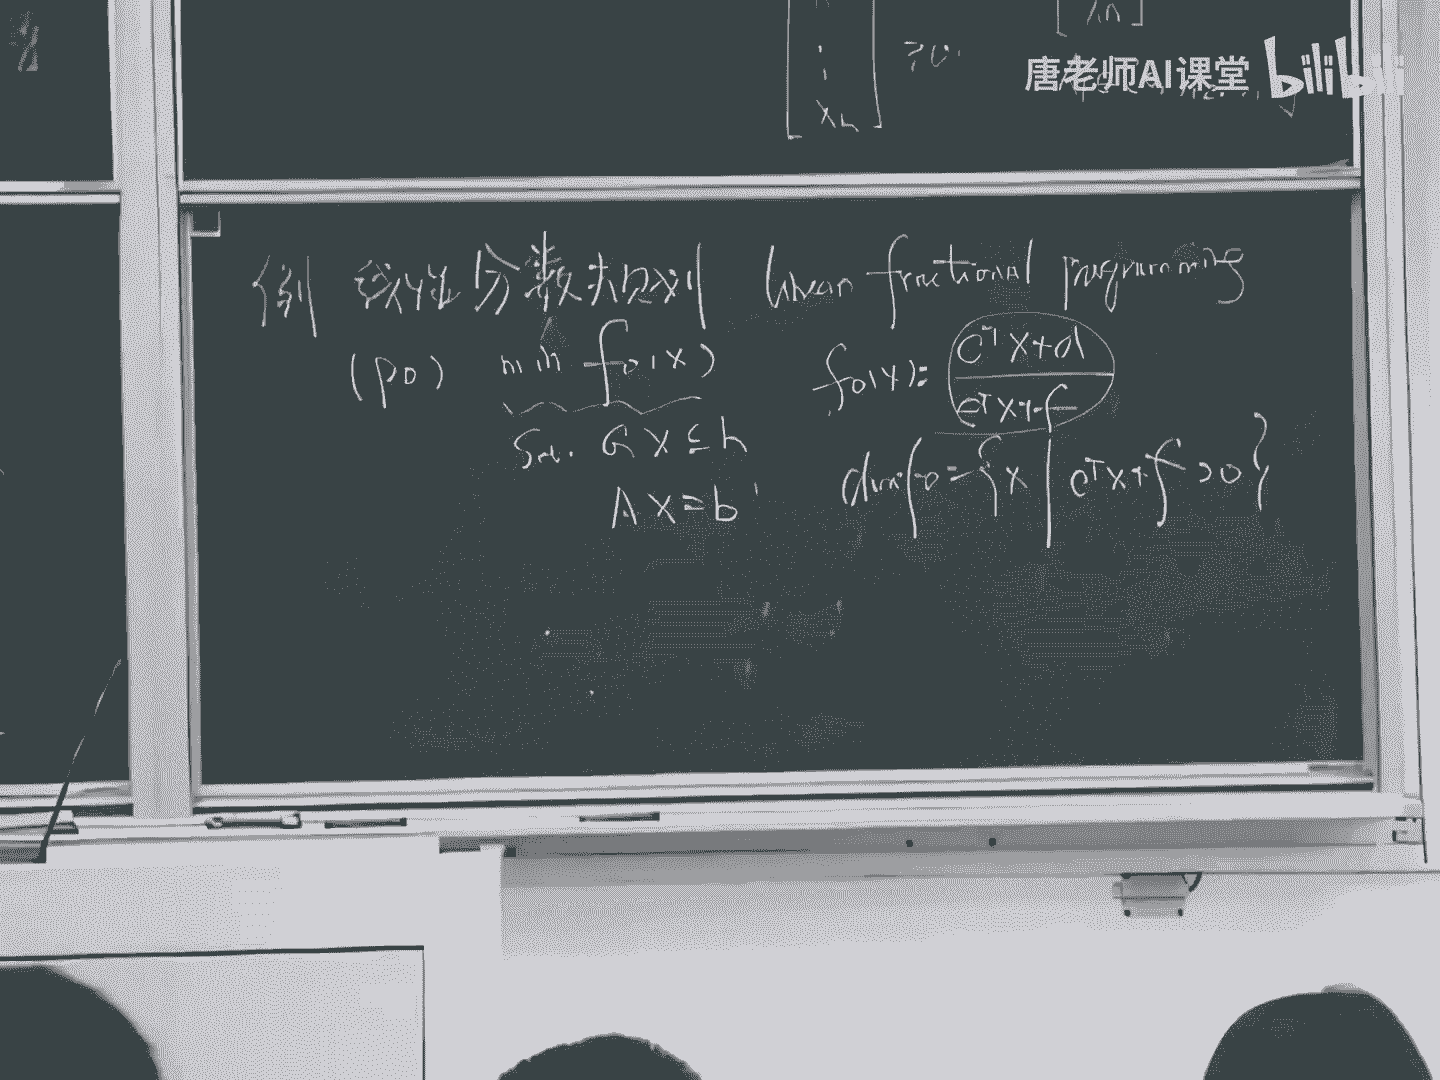 xₙ
≥0
唐老师AI课堂 bilibili
例 线性分数规划 linear fractional programming
(P0) min f₀(x) f₀(x)= (cᵀx+d)/(eᵀx+f)
s.t. Gx≤h
domf₀={x|eᵀx+f>0}
Ax=b